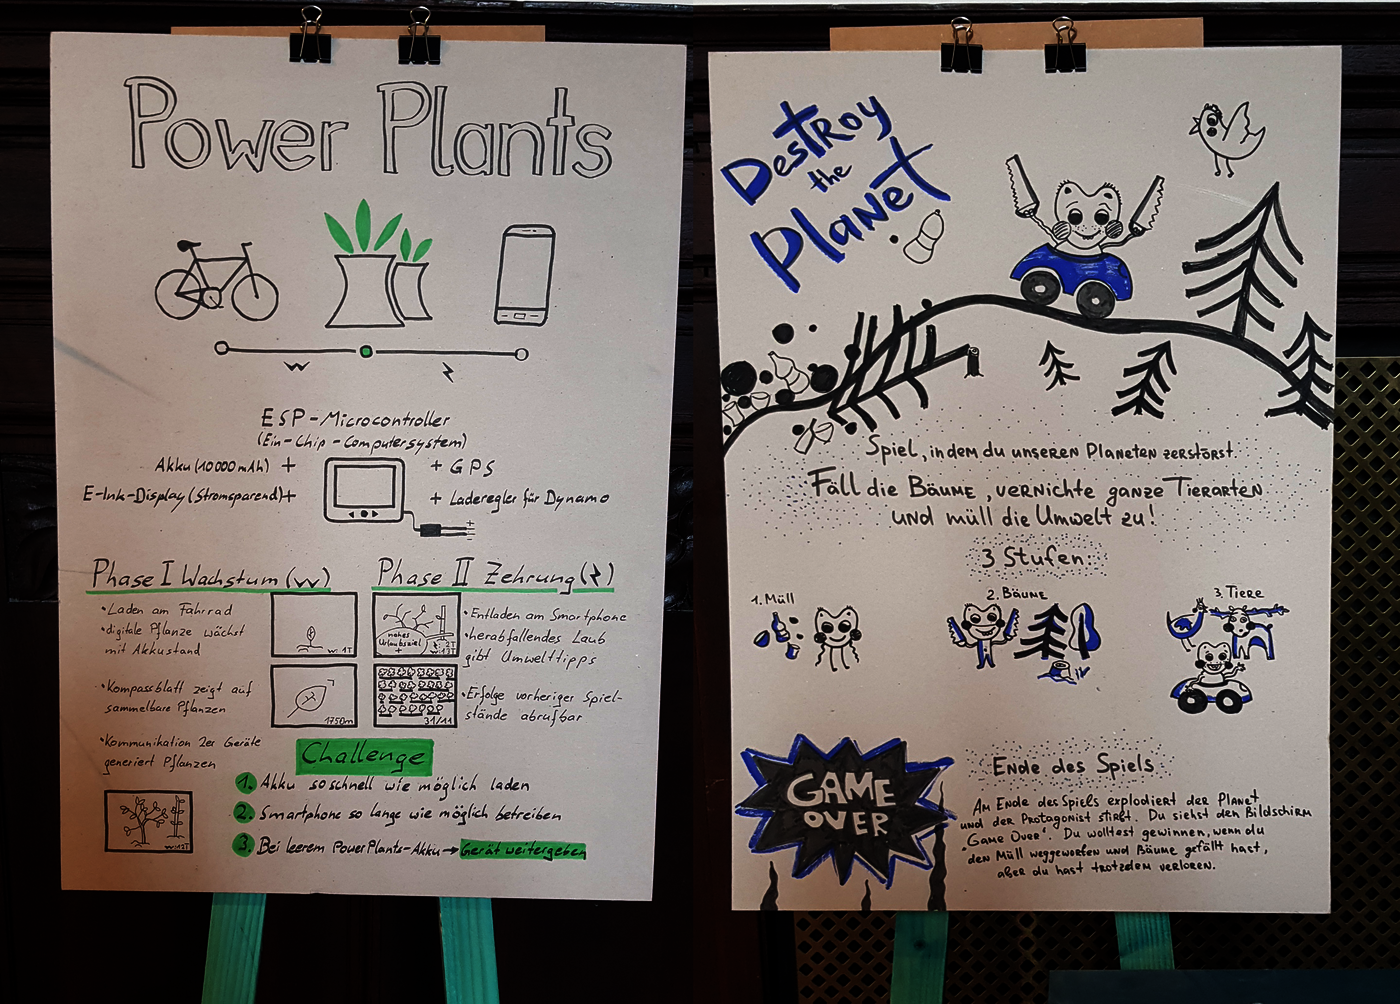 Power Plants
ESP-Microcontroller
(Ein-Chip-Computersystem)
Akku (10000mAh) +
E-Ink-Display (Stromsparend) +
+ GPS
+ Laderegler für Dynamo
Phase I Wachstum (
• Laden am Fahrrad
• digitale Pflanze wächst
mit Akkustand
• Kompassblatt zeigt auf
sammelbare Pflanzen
• Kommunikation 2er Geräte
generiert Pflanzen
w: 1T
1750m
w: 12T
Phase II Zehrung (
nahes
Urlaubsziel
31/11
• Entladen am Smartphone
• herabfallendes Laub
gibt Umwelttipps
• Erfolge vorheriger Spiel-
stände abrufbar
Challenge
1. Akku so schnell wie möglich laden
2. Smartphone so lange wie möglich betreiben
3. Bei leerem PowerPlants-Akku → Gerät weitergeben
Destroy
the
Planet
Spiel, in dem du unseren Planeten zerstörst.
Fäll die Bäume, vernichte ganze Tierarten
und müll die Umwelt zu!
3 Stufen:
1. Müll
2. Bäume
3. Tiere
GAME
OVER
Ende des Spiels
Am Ende des Spiels explodiert der Planet
und der Protagonist stirbt. Du siehst den Bildschirm
"Game Over". Du wolltest gewinnen, wenn du
den Müll weggeworfen und Bäume gefällt hast,
aber du hast trotzdem verloren.